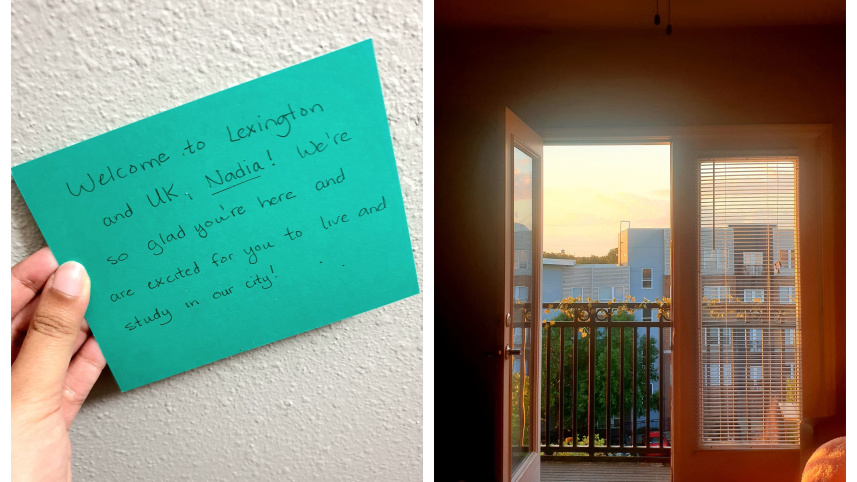 Welcome to Lexington
and UK, Nadia! We're
so glad you're here and
are excited for you to live and
study in our city!